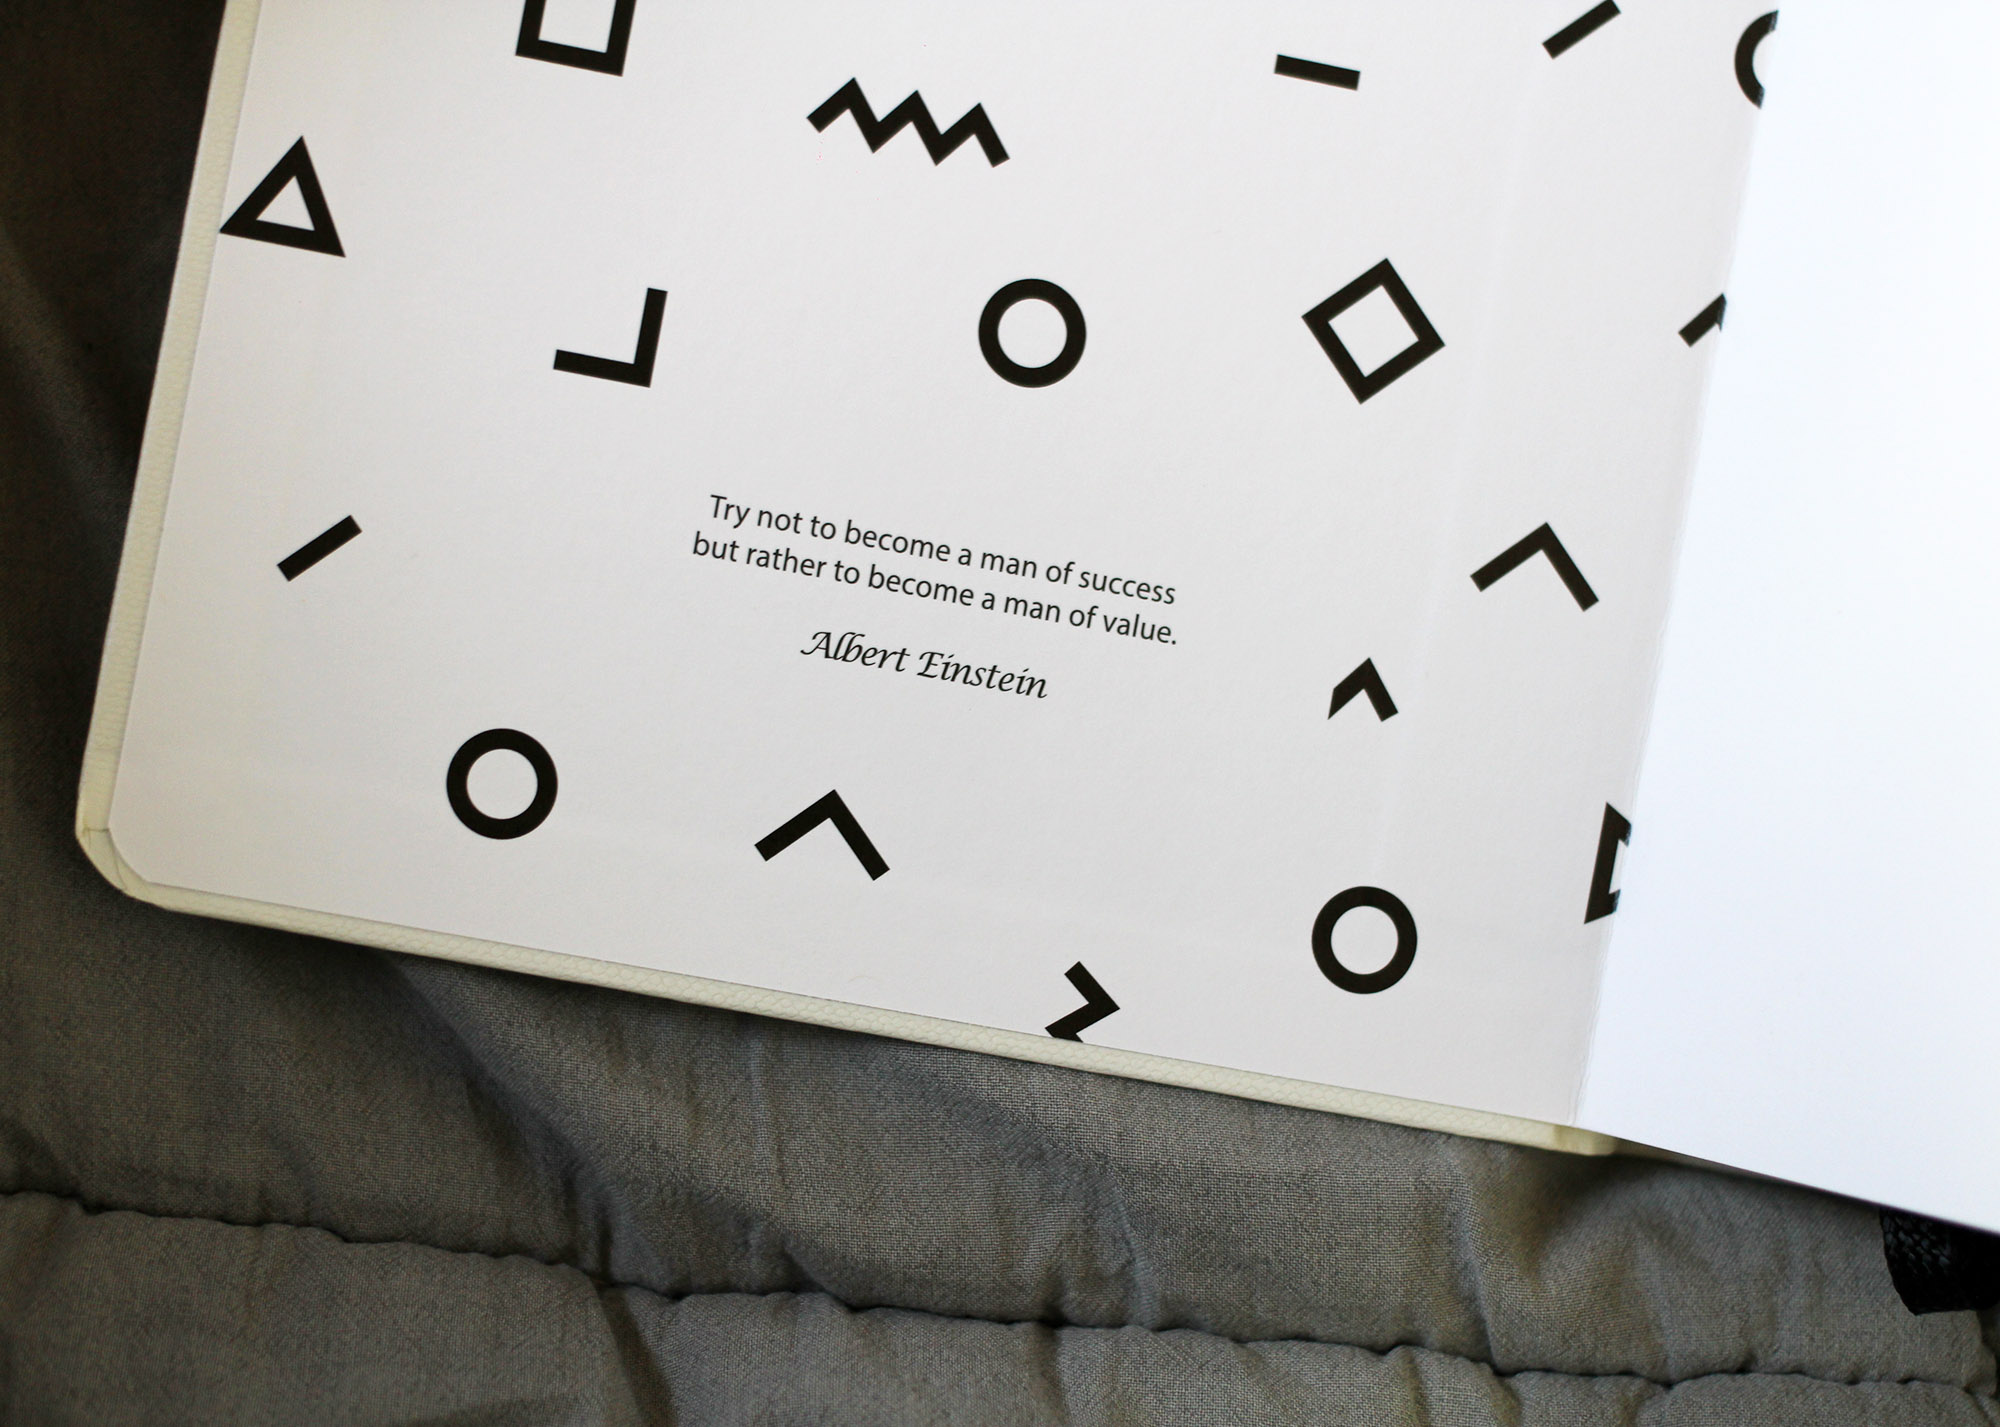 Try not to become a man of success
but rather to become a man of value.
Albert Einstein